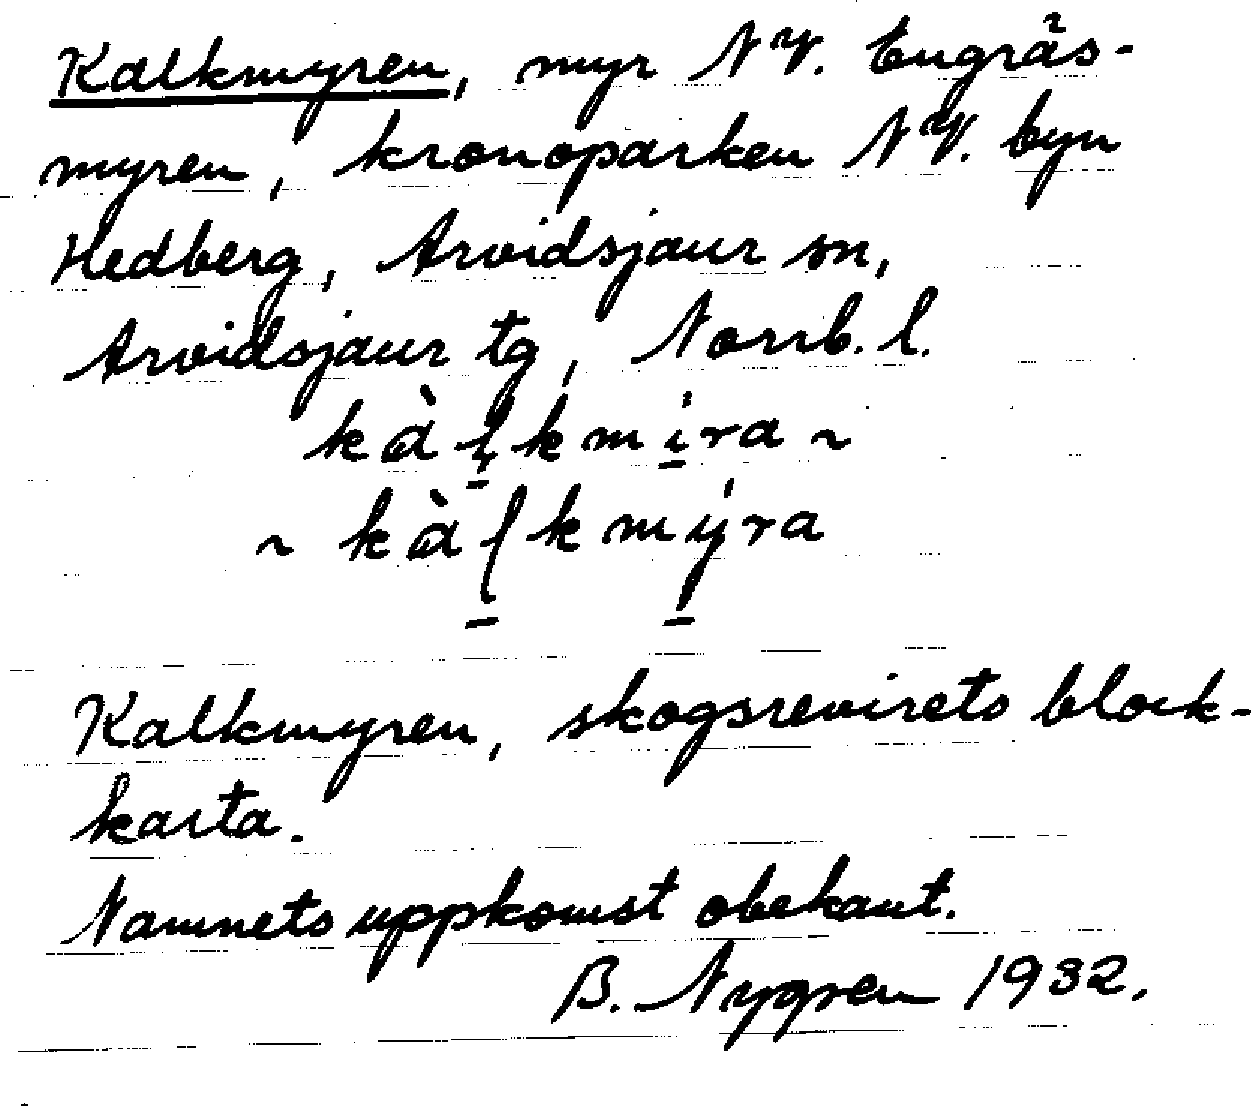 Kalkmyren, myr NV. Eugräs-
myren, kronoparken NV. byn
Hedberg, Arvidsjaur sn,
Arvidsjaur tg, Norrb. l.
kàḷkmira ~
~ kàlkmyra
Kalkmyren, skogsrevirets block-
karta.
Namnets uppkomst obekant.
B. Nygren 1932.